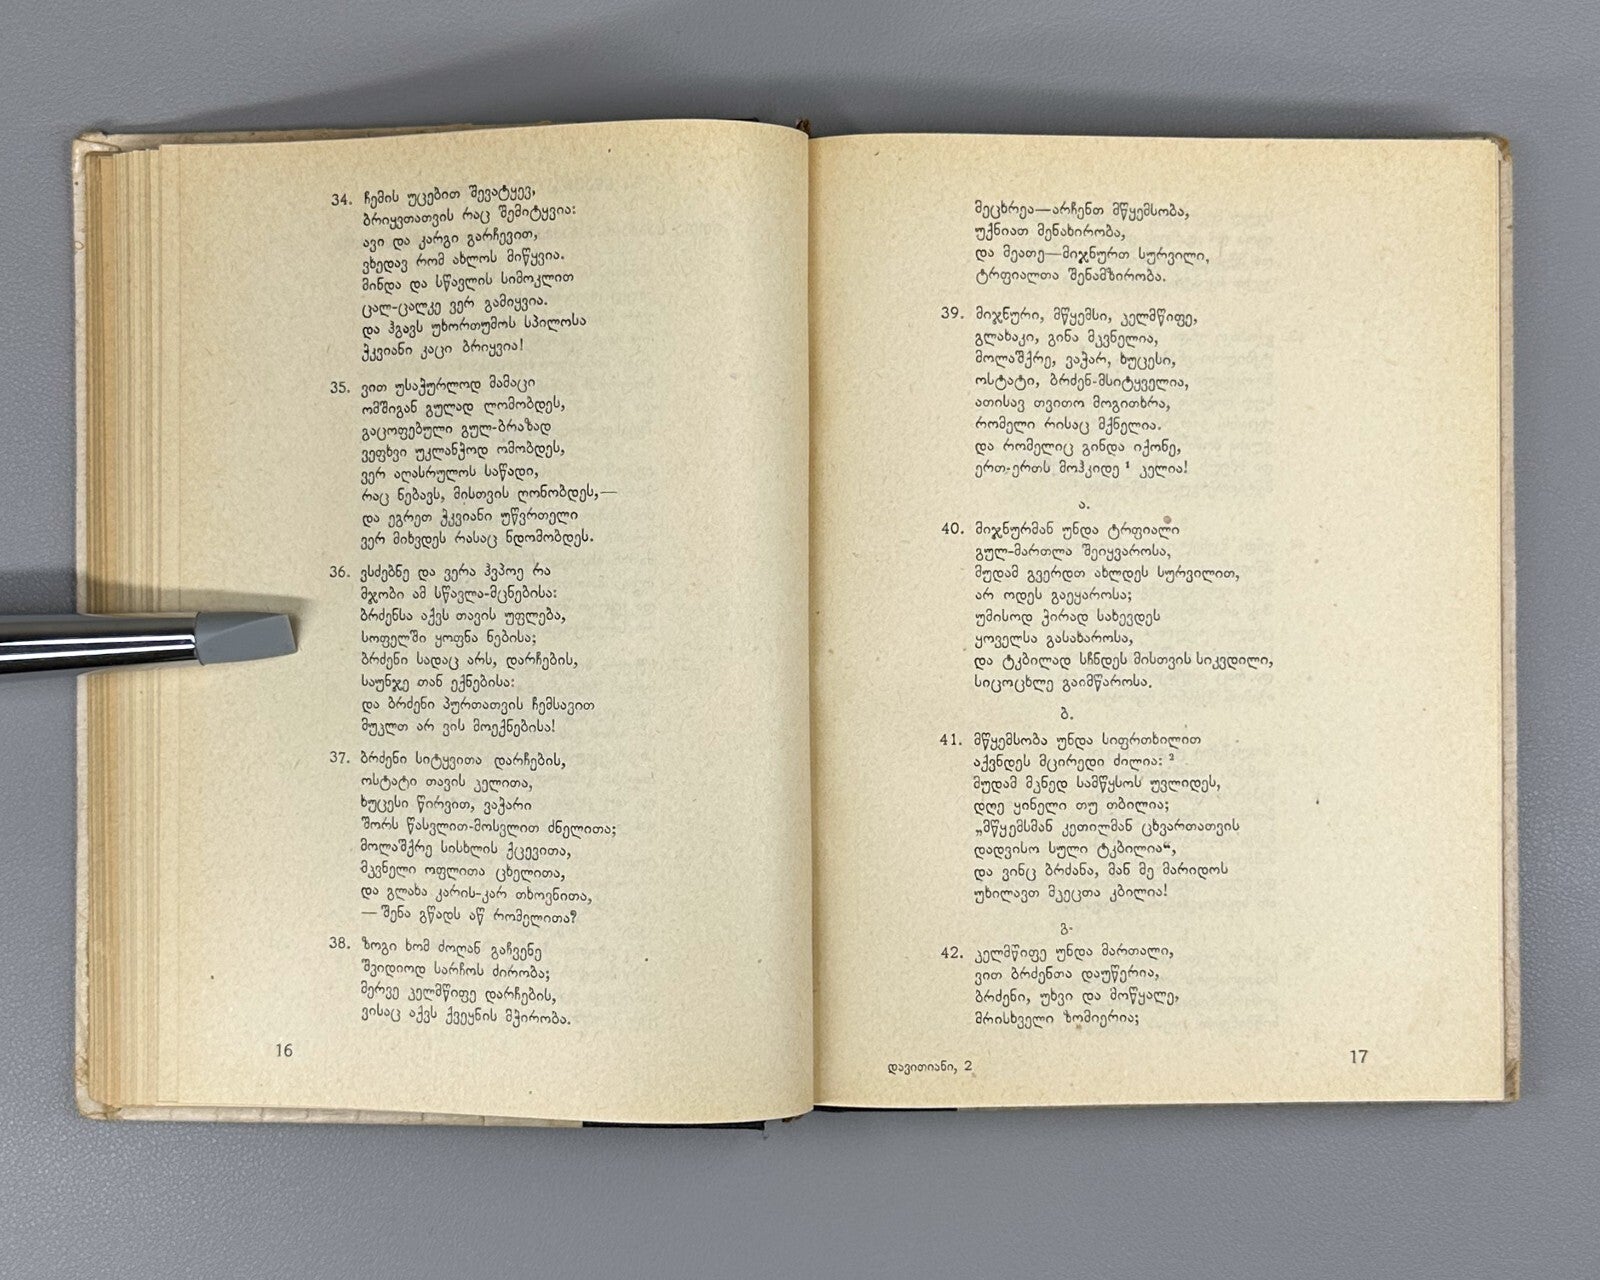 34. ჩემის უცებით შევატყევ,
ბრიყვთათვის რაც შემიტყვია:
ავი და კარგი გარჩევით,
ვხედავ რომ ახლოს მიწყვია.
მინდა და სწავლის სიმოკლით
ცალ-ცალკე ვერ გამიყვია.
და ჰგავს უხორთუმოს სპილოსა
ჭკვიანი კაცი ბრიყვია!
35. ვით უსაჭურლოდ მამაცი
ომშიგან გულად ლომობდეს,
გაცოფებული გულ-ბრაზად
ვეფხვი უკლანჭოდ ომობდეს,
ვერ აღასრულოს საწადი,
რაც ნებავს, მისთვის ღონობდეს,—
და ეგრეთ ჭკვიანი უწვრთელი
ვერ მიხვდეს რასაც ნდომობდეს.
36. ვსძებნე და ვერა ჰვპოე რა
მჯობი ამ სწავლა-მცნებისა:
ბრძენსა აქვს თავის უფლება,
სოფელში ყოფნა ნებისა;
ბრძენი სადაც არს, დარჩების,
საუნჯე თან ექნებისა:
და ბრძენი პურთათვის ჩემსავით
მუჴლთ არ ვის მოექნებისა!
37. ბრძენი სიტყვითა დარჩების,
ოსტატი თავის ჴელითა,
ხუცესი წირვით, ვაჭარი
შორს წასვლით-მოსვლით ძნელითა;
მოლაშქრე სისხლის ქცევითა,
მკვნელი ოფლითა ცხელითა,
და გლახა კარის-კარ თხოვნითა,
— შენა გწადს აწ რომელითა?
38. ზოგი ხომ ძოღან გაჩვენე
შვიდიოდ სარჩოს ძირობა;
მერვე ჴელმწიფე დარჩების,
ვისაც აქვს ქვეყნის მჭირობა.
16
მეცხრეა—არჩენთ მწყემსობა,
უქნიათ მენახირობა,
და მეათე—მიჯნურთ სურვილი,
ტრფიალთა შენამზირობა.
39. მიჯნური, მწყემსი, ჴელმწიფე,
გლახაკი, გინა მკვნელია,
მოლაშქრე, ვაჭარ, ხუცესი,
ოსტატი, ბრძენ-მსიტყველია,
ათისავ თვითო მოგითხრა,
რომელი რისაც მქნელია.
და რომელიც გინდა იქონე,
ერთ-ერთს მოჰკიდე ¹ ჴელია!
ა.
40. მიჯნურმან უნდა ტრფიალი
გულ-მართლა შეიყვაროსა,
მუდამ გვერდთ ახლდეს სურვილით,
არ ოდეს გაეყაროსა;
უმისოდ ჭირად სახევდეს
ყოველსა გასახაროსა,
და ტკბილად სჩნდეს მისთვის სიკვდილი,
სიცოცხლე გაიმწაროსა.
ბ.
41. მწყემსობა უნდა სიფრთხილით
აქვნდეს მცირედი ძილია: ²
მუდამ მჴნედ სამწყსოს უვლიდეს,
დღე ყინელი თუ თბილია;
„მწყემსმან კეთილმან ცხვართათვის
დადვისო სული ტკბილია“,
და ვინც ბრძანა, მან მე მარიდოს
უხილავთ მჴეცთა კბილია!
გ.
42. ჴელმწიფე უნდა მართალი,
ვით ბრძენთა დაუწერია,
ბრძენი, უხვი და მოწყალე,
მრისხველი ზომიერია;
დავითიანი, 2
17